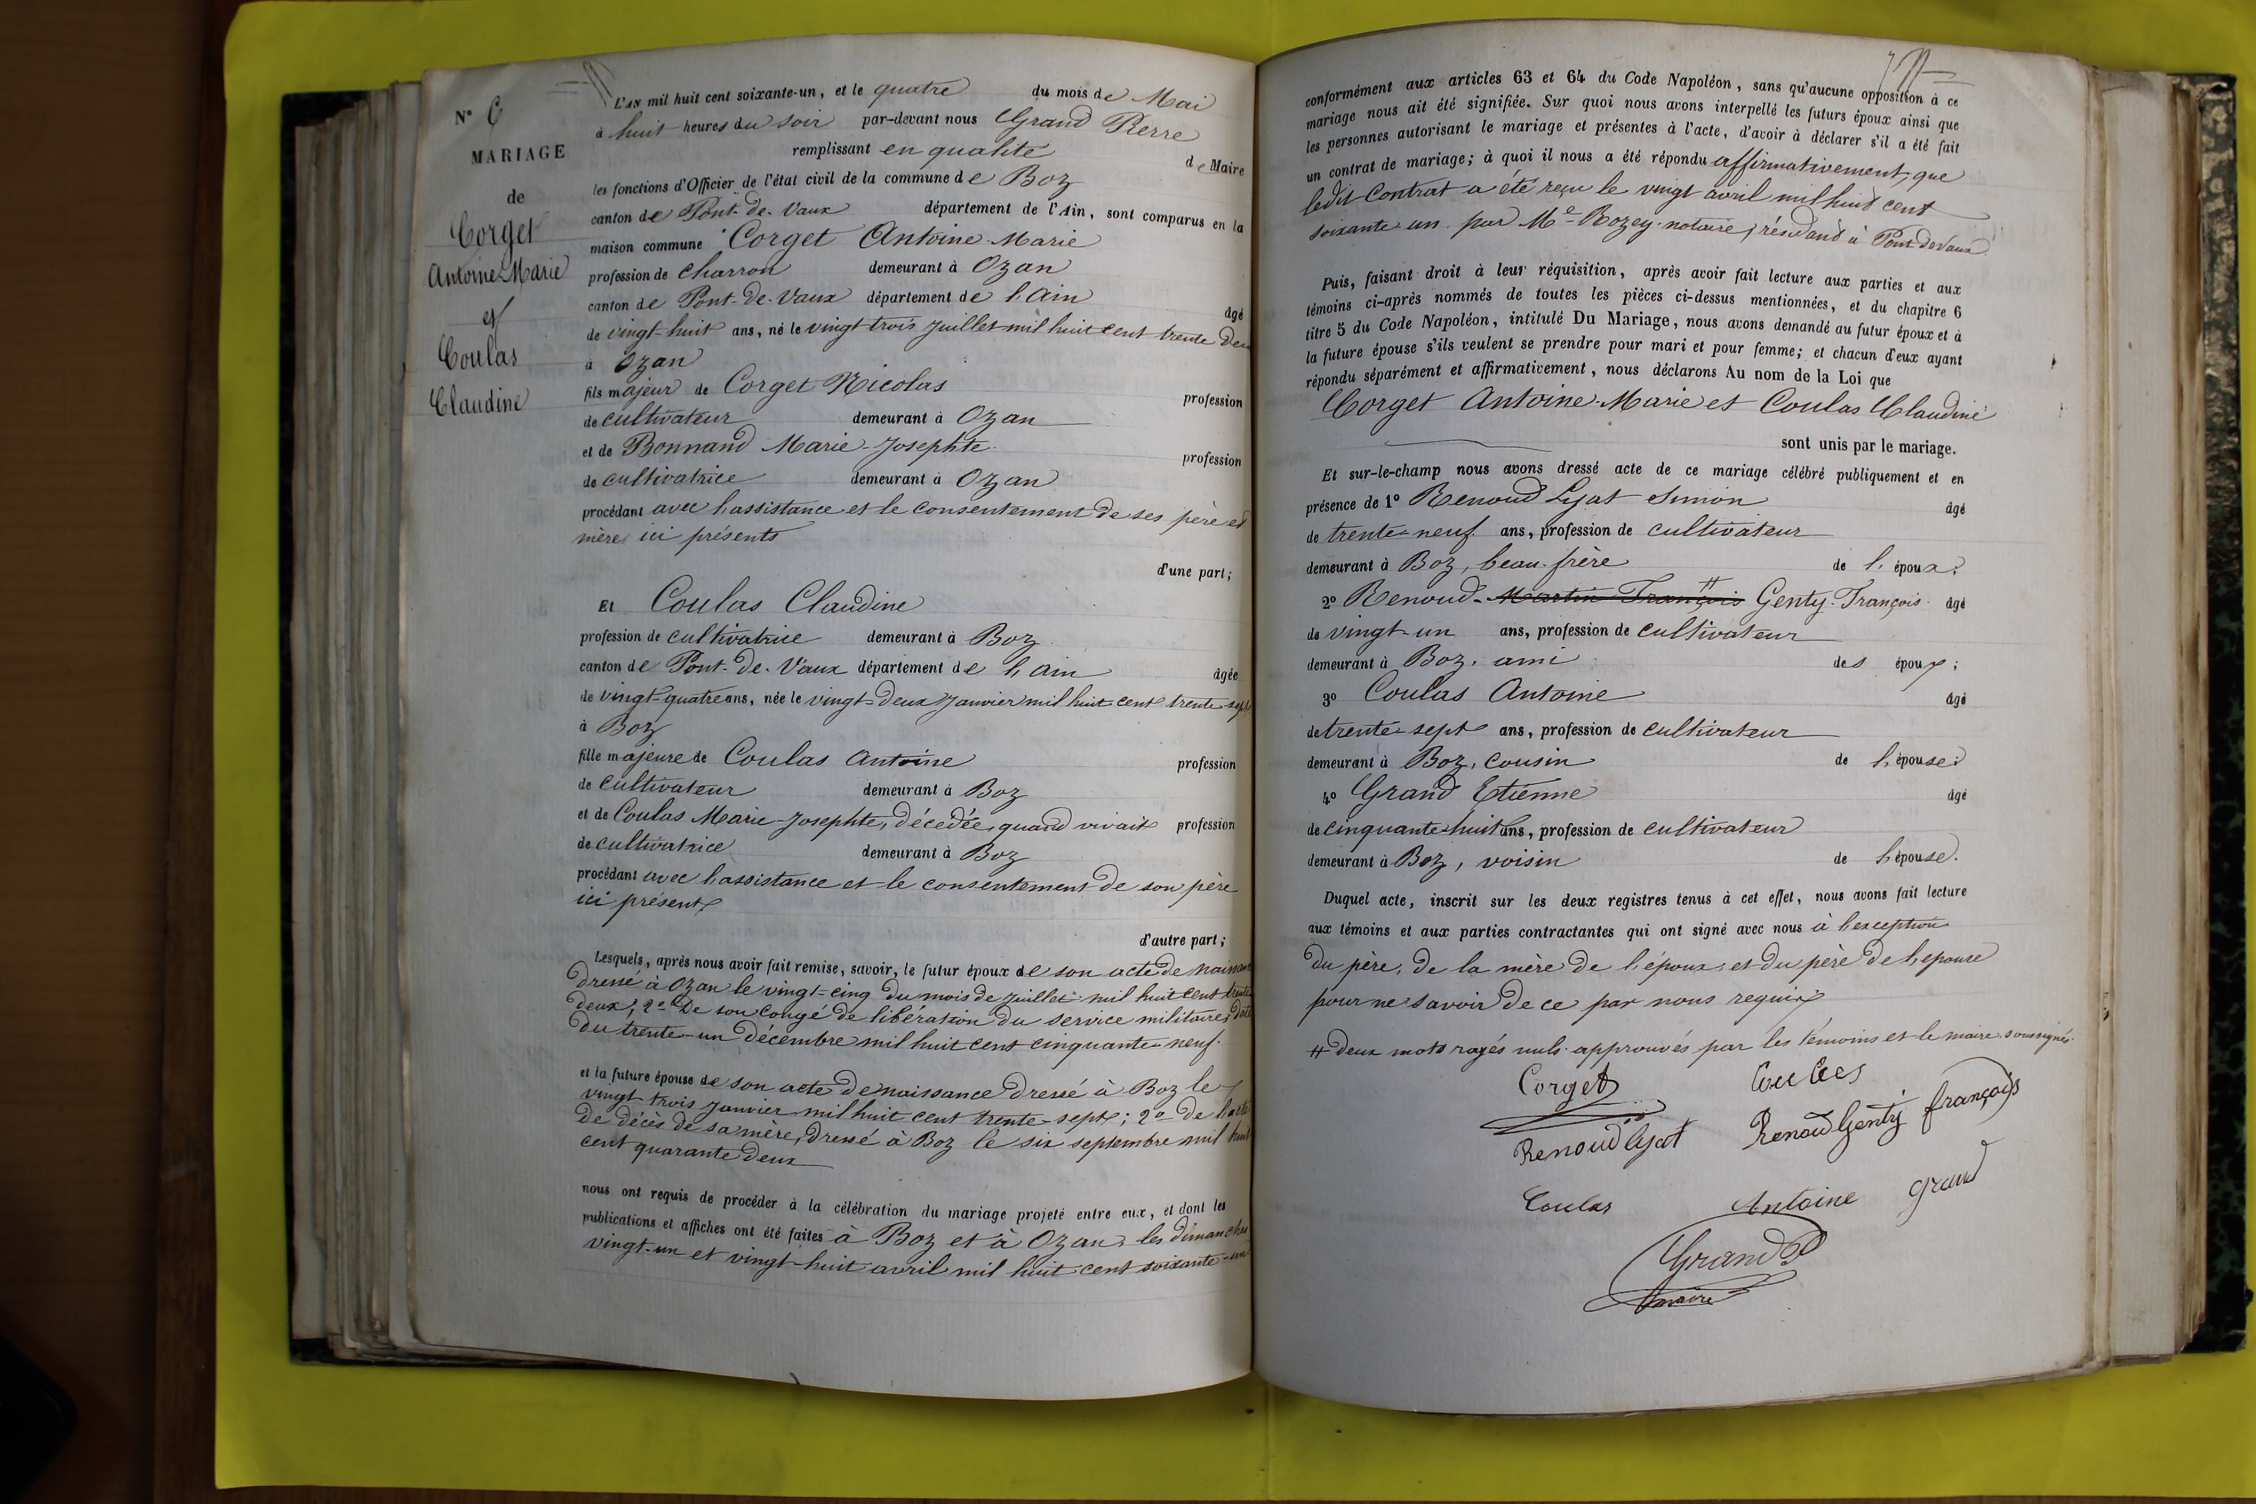 N° 6
MARIAGE
de
Corget
Antoine-Marie
et
Coulas
Claudine
L'AN mil huit cent soixante-un, et le quatre du mois de Mai
à huit heures du soir par-devant nous Grand Pierre
remplissant en qualité de Maire
les fonctions d'Officier de l'état civil de la commune de Boz
canton de Pont-de-Vaux département de l'Ain, sont comparus en la
maison commune Corget Antoine-Marie
profession de charron demeurant à Ozan
canton de Pont-de-Vaux département de l'Ain
âgé
de vingt-huit ans, né le vingt-trois juillet mil huit cent trente deux
à Ozan
fils majeur de Corget Nicolas
profession
de cultivateur demeurant à Ozan
et de Bonnand Marie-Josephte
profession
de cultivatrice demeurant à Ozan
procédant avec l'assistance et le consentement de ses père et
mère ici présents
d'une part;
Et Coulas Claudine
profession de cultivatrice demeurant à Boz
canton de Pont-de-Vaux département de l'Ain âgée
de vingt-quatre ans, née le vingt-deux janvier mil huit cent trente-sept
à Boz
fille majeure de Coulas Antoine profession
de cultivateur demeurant à Boz
et de Coulas Marie-Josephte, décédée, quand vivait profession
de cultivatrice demeurant à Boz
procédant avec l'assistance et le consentement de son père
ici présent
d'autre part;
Lesquels, après nous avoir fait remise, savoir, le futur époux de son acte de naissance
dressé à Ozan le vingt-cinq du mois de juillet mil huit cent trente
deux; 2° De son congé de libération du service militaire, daté
du trente-un décembre mil huit cent cinquante-neuf.
et la future épouse de son acte de naissance dressé à Boz le
vingt-trois janvier mil huit cent trente-sept; 2° de l'acte
de décès de sa mère, dressé à Boz le six septembre mil huit
cent quarante deux
nous ont requis de procéder à la célébration du mariage projeté entre eux, et dont les
publications et affiches ont été faites à Boz et à Ozan, les dimanches
vingt-un et vingt-huit avril mil huit cent soixante-un
conformément aux articles 63 et 64 du Code Napoléon, sans qu'aucune opposition à ce
mariage nous ait été signifiée. Sur quoi nous avons interpellé les futurs époux ainsi que
les personnes autorisant le mariage et présentes à l'acte, d'avoir à déclarer s'il a été fait
un contrat de mariage; à quoi il nous a été répondu affirmativement, que
ledit Contrat a été reçu le vingt avril mil huit cent
soixante-un par Me Rozey notaire, résidant à Pont-de-Vaux
Puis, faisant droit à leur réquisition, après avoir fait lecture aux parties et aux
témoins ci-après nommés de toutes les pièces ci-dessus mentionnées, et du chapitre 6
titre 5 du Code Napoléon, intitulé Du Mariage, nous avons demandé au futur époux et à
la future épouse s'ils veulent se prendre pour mari et pour femme; et chacun d'eux ayant
répondu séparément et affirmativement, nous déclarons Au nom de la Loi que
Corget Antoine-Marie et Coulas Claudine
sont unis par le mariage.
Et sur-le-champ nous avons dressé acte de ce mariage célébré publiquement et en
présence de 1° Renoud Lyat Simon âgé
de trente-neuf ans, profession de cultivateur
demeurant à Boz, beau-frère de l'époux;
2° Renoud-Martin François # Genty François âgé
de vingt-un ans, profession de cultivateur
demeurant à Boz, ami des époux;
3° Coulas Antoine âgé
de trente-sept ans, profession de cultivateur
demeurant à Boz, cousin de l'épouse;
4° Grand Etienne âgé
de cinquante-huit ans, profession de cultivateur
demeurant à Boz, voisin de l'épouse.
Duquel acte, inscrit sur les deux registres tenus à cet effet, nous avons fait lecture
aux témoins et aux parties contractantes qui ont signé avec nous à l'exception
du père, de la mère de l'époux, et du père de l'épouse
pour ne savoir de ce par nous requis
# deux mots rayés nuls approuvés par les témoins et le maire soussignés.
Corget
Renoud Lyat Renoud Genty françois
Coulas Antoine Grand
Grand P
maire